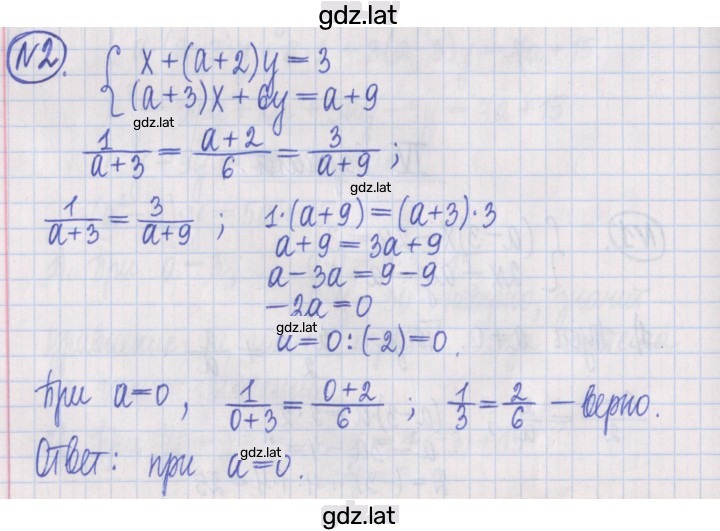 gdz.lat
№2. { x+(a+2)y=3
(a+3)x+6y=a+9
gdz.lat
1/(a+3) = (a+2)/6 = 3/(a+9) ;
gdz.lat
1/(a+3) = 3/(a+9) ; 1·(a+9)=(a+3)·3
a+9=3a+9
a-3a=9-9
-2a=0
gdz.lat
a=0:(-2)=0.
При a=0, 1/(0+3) = (0+2)/6 ; 1/3 = 2/6 – верно.
gdz.lat
Ответ: при a=0.
gdz.lat